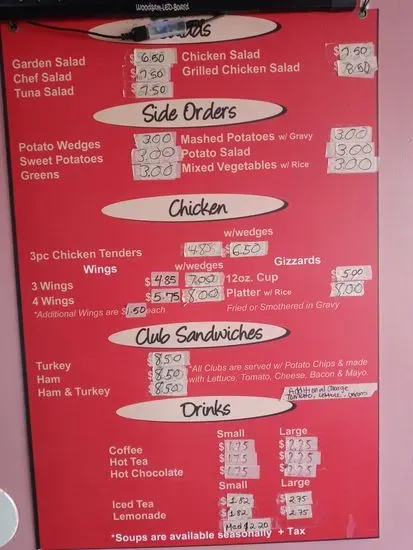 Woodgrain-LED-Board
Salads
Garden Salad $6.50 Chicken Salad $7.50
Chef Salad $7.50 Grilled Chicken Salad 8.50
Tuna Salad $7.50
Side Orders
Potato Wedges 3.00 Mashed Potatoes w/ Gravy 3.00
Sweet Potatoes 3.00 Potato Salad 3.00
Greens 3.00 Mixed Vegetables w/ Rice 3.00
Chicken
w/wedges
3pc Chicken Tenders 4.85 $6.50
Wings w/wedges Gizzards
3 Wings $4.85 7.00 12oz. Cup $5.00
4 Wings $5.75 8.00 Platter w/ Rice 8.00
*Additional Wings are $1.50 each Fried or Smothered in Gravy
Club Sandwiches
Turkey 8.50 *All Clubs are served w/ Potato Chips & made
Ham 8.50 with Lettuce, Tomato, Cheese, Bacon & Mayo.
Ham & Turkey 8.50 Additional Charge
Tomato, Lettuce, Onions
Drinks
Small Large
Coffee $1.75 $2.75
Hot Tea $1.75 $2.75
Hot Chocolate $1.75 $2.75
Small Large
Iced Tea $1.82 $2.75
Lemonade $1.82 $2.75
Med $2.20
*Soups are available seasonally + Tax